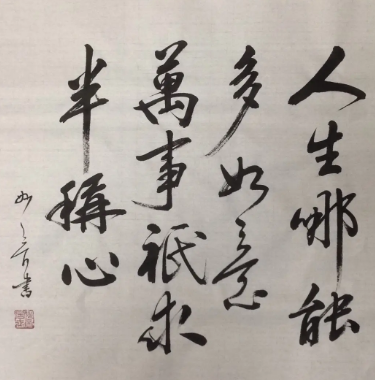 人生哪能
多如意
萬事祇求
半稱心